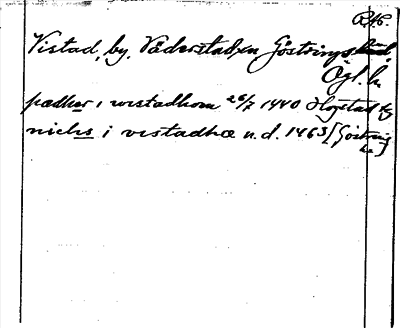 Vistad, by, Väderstad sn Göstrings hd
Ögl. l.
pædher i wistadhom 26/7 1440 Hogstad
niclis i vistadhæ u.d. 1463 [Gostring
hæ]